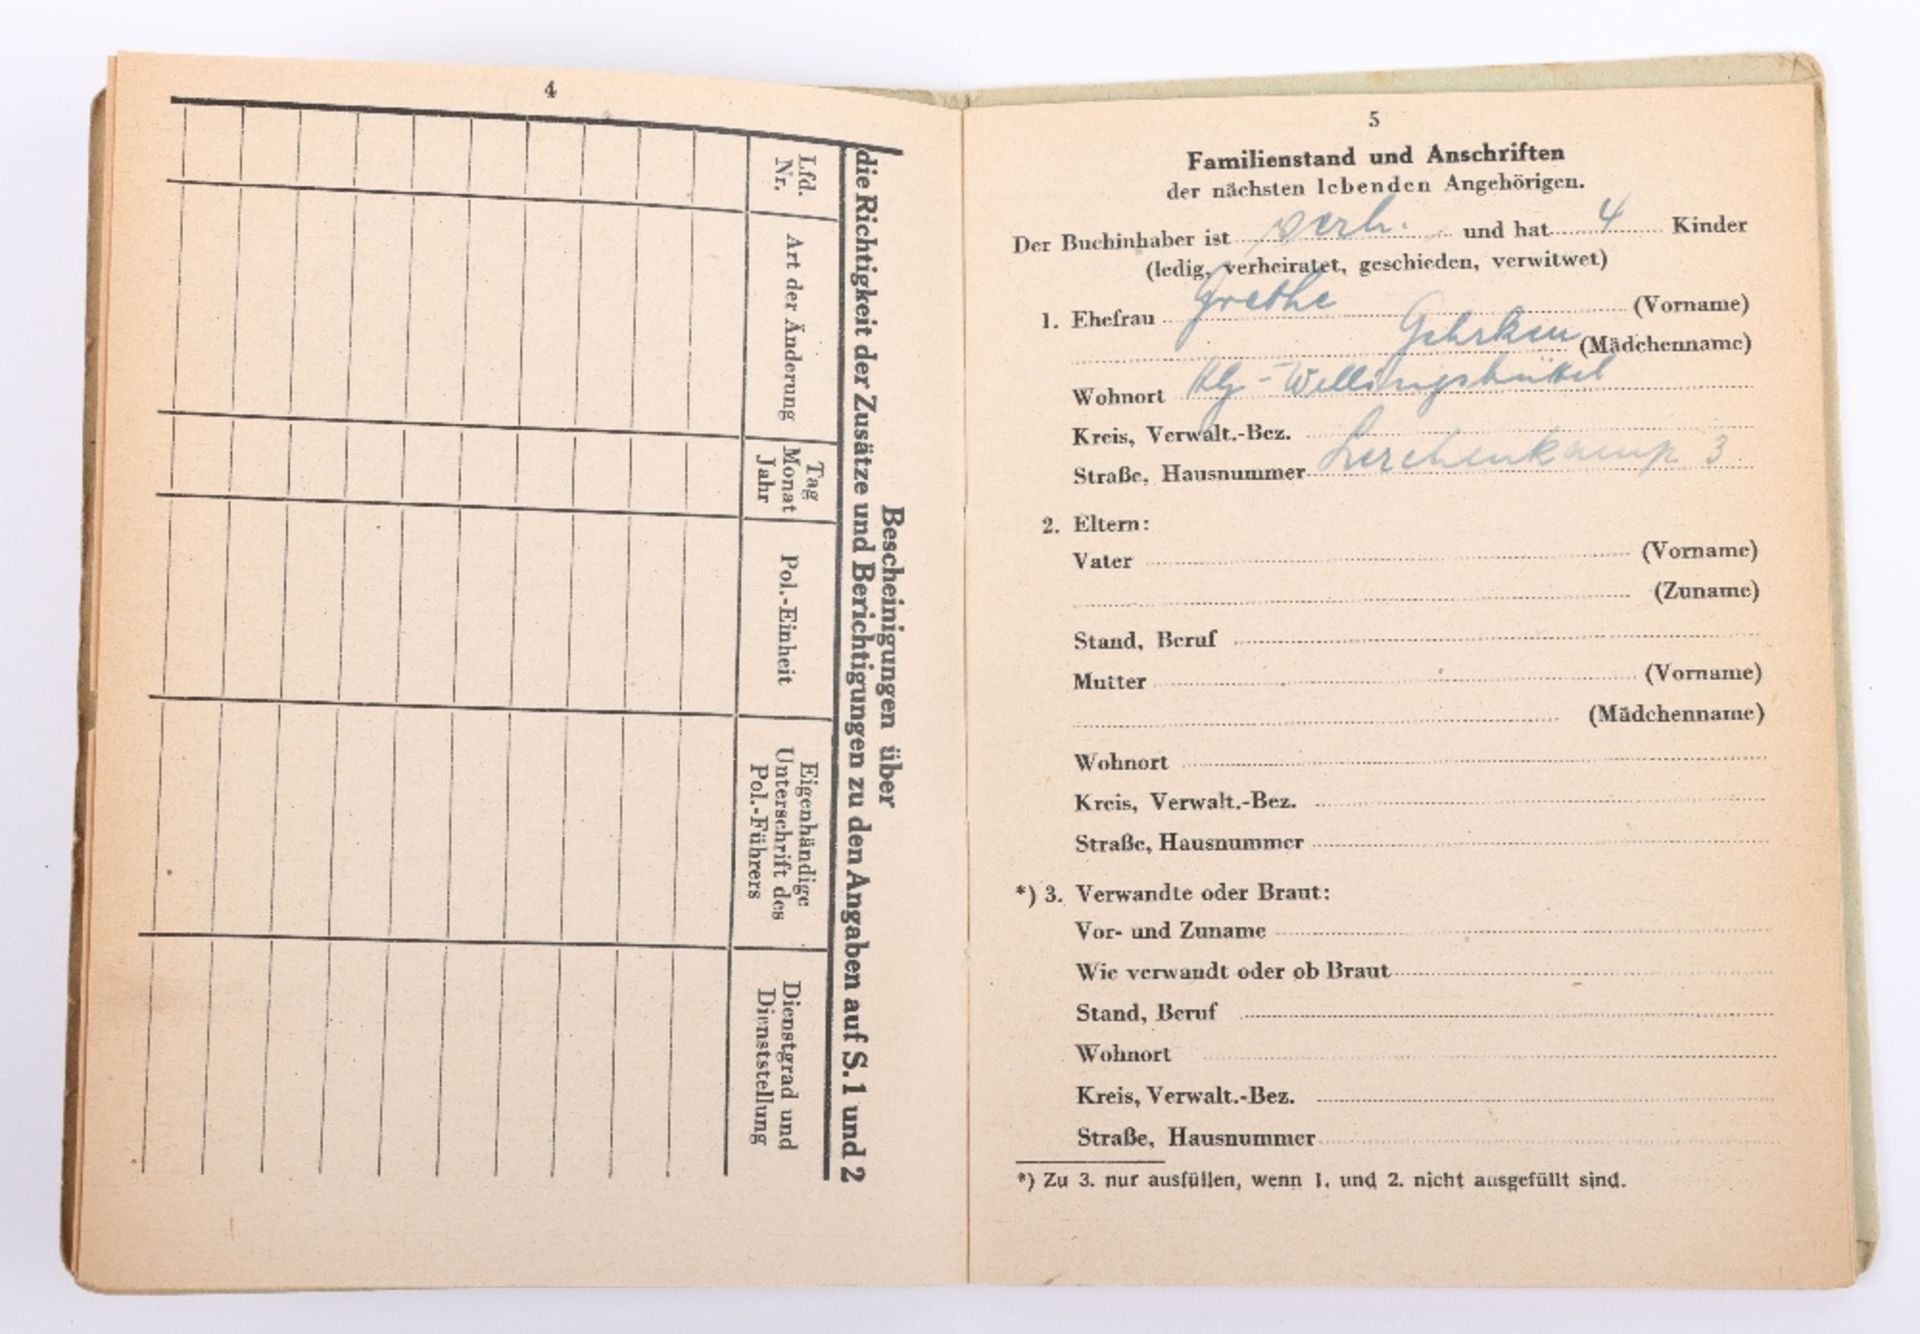 4
Bescheinigungen über
die Richtigkeit der Zusätze und Berichtigungen zu den Angaben auf S. 1 und 2
Lfd. Nr.
Art der Änderung
Tag Monat Jahr
Pol.-Einheit
Eigenhändige Unterschrift des Pol.-Führers
Dienstgrad und Dienststellung
5
Familienstand und Anschriften
der nächsten lebenden Angehörigen.
Der Buchinhaber ist verh. und hat 4 Kinder
(ledig, verheiratet, geschieden, verwitwet)
1. Ehefrau Grethe (Vorname)
Gehrken (Mädchenname)
Wohnort Hbg-Wellingsbüttel
Kreis, Verwalt.-Bez.
Straße, Hausnummer Lerchenkamp 3
2. Eltern:
Vater (Vorname)
(Zuname)
Stand, Beruf
Mutter (Vorname)
(Mädchenname)
Wohnort
Kreis, Verwalt.-Bez.
Straße, Hausnummer
*) 3. Verwandte oder Braut:
Vor- und Zuname
Wie verwandt oder ob Braut
Stand, Beruf
Wohnort
Kreis, Verwalt.-Bez.
Straße, Hausnummer
*) Zu 3. nur ausfüllen, wenn 1. und 2. nicht ausgefüllt sind.